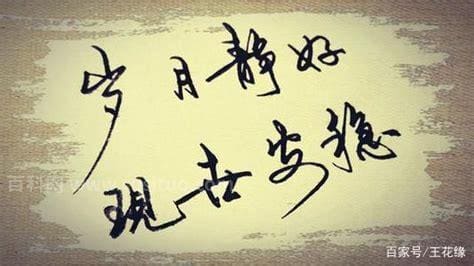 岁月静好
現世安稳
百家号/王花缘